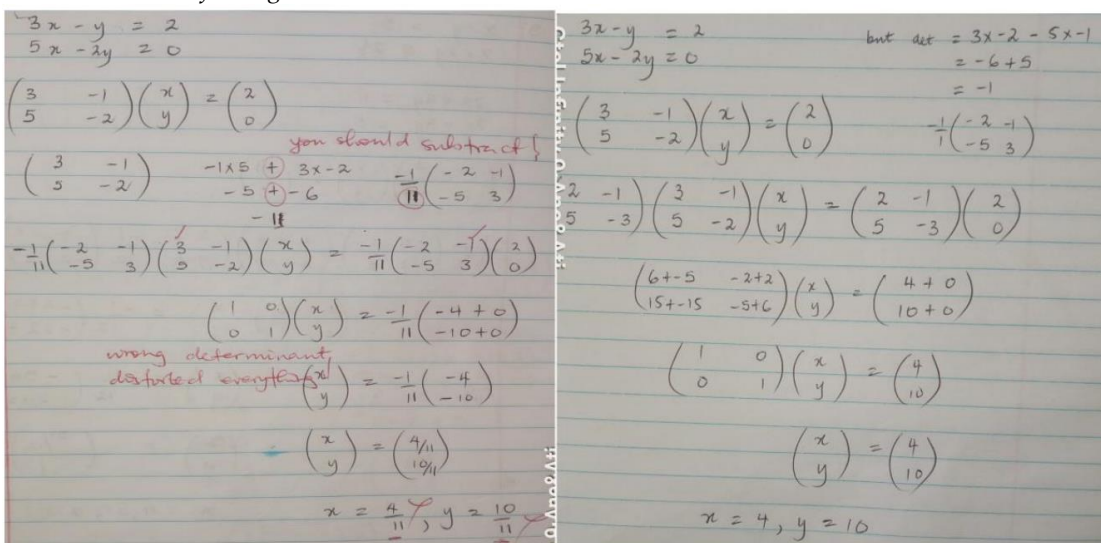 3x - y = 2
5x - 2y = 0
( 3 -1 ; 5 -2 ) ( x ; y ) = ( 2 ; 0 )
you should substract!
( 3 -1 ; 5 -2 ) -1x5 + 3x-2 -1/11 ( -2 -1 ; -5 3 )
-5 + -6
-11
-1/11 ( -2 -1 ; -5 3 ) ( 3 -1 ; 5 -2 ) ( x ; y ) = -1/11 ( -2 -1 ; -5 3 ) ( 2 ; 0 )
( 1 0 ; 0 1 ) ( x ; y ) = -1/11 ( -4 + 0 ; -10+0 )
wrong determinant
distorted everything!
( x ; y ) = -1/11 ( -4 ; -10 )
( x ; y ) = ( 4/11 ; 10/11 )
x = 4/11, y = 10/11
3x - y = 2
5x - 2y = 0
but det = 3x-2 - 5x-1
= -6 + 5
= -1
( 3 -1 ; 5 -2 ) ( x ; y ) = ( 2 ; 0 )
-1/1 ( -2 -1 ; -5 3 )
2 -1 ; 5 -3 ) ( 3 -1 ; 5 -2 ) ( x ; y ) = ( 2 -1 ; 5 -3 ) ( 2 ; 0 )
( 6+-5 -2+2 ; 15+-15 -5+6 ) ( x ; y ) = ( 4 + 0 ; 10 + 0 )
( 1 0 ; 0 1 ) ( x ; y ) = ( 4 ; 10 )
( x ; y ) = ( 4 ; 10 )
x = 4, y = 10